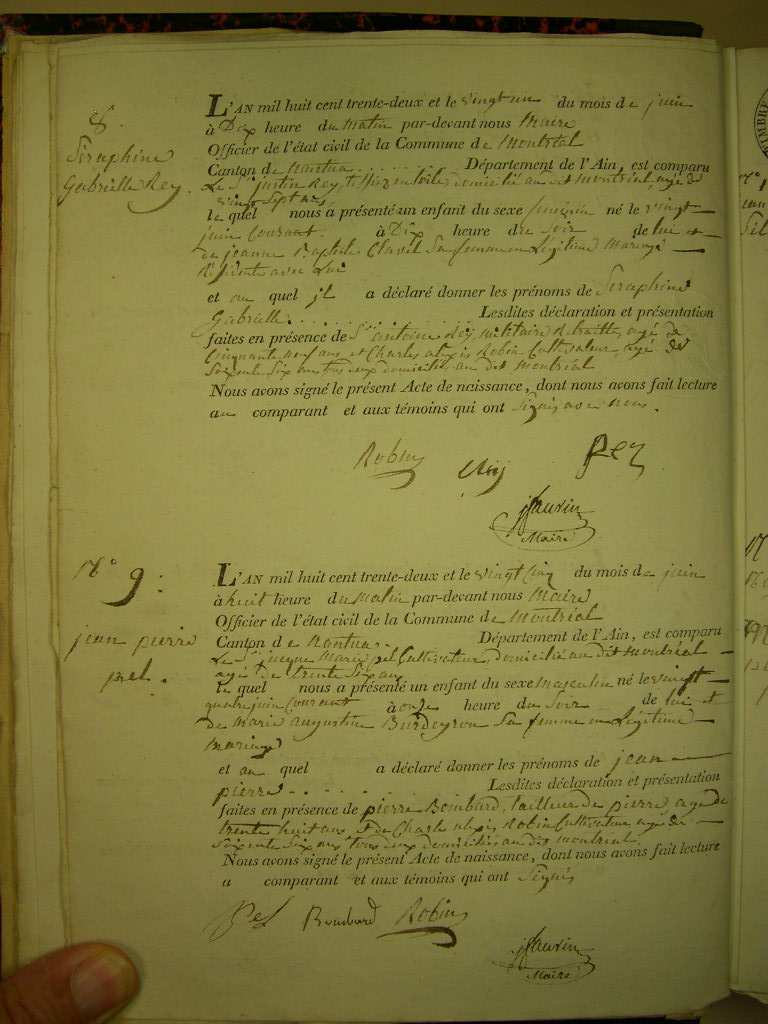 8.
Seraphine
Gabrielle Rey.
L'AN mil huit cent trente-deux et le vingt un du mois de juin
à Dix heure du matin par-devant nous Maire
Officier de l'état civil de la Commune de Montréal
Canton de Nantua. Département de l'Ain, est comparu
Le Sr justin Rey, domicilié au dit Montréal, agé de
vingt sept ans
le quel nous à présenté un enfant du sexe feminin né le vingt
juin Courant. à Dix heure du soir de lui et
de jeanne Baptiste Clavel Sa femme en Légitime Mariage
Résidente avec Lui
et au quel jl a déclaré donner les prénoms de Seraphine
Gabrielle. Lesdites déclaration et présentation
faites en présence de Sr antoine Rey militaire Retraité, agé de
Cinquante neuf ans et Charles alexis Robin Cultivateur agé de
Soixante Six ans tous deux domiciliés au dit Montréal
Nous avons signé le présent Acte de naissance, dont nous avons fait lecture
au comparant et aux témoins qui ont Signés avec nous.
Robin Rey Rey
Maire
N° 9.
jean pierre
pel.
L'AN mil huit cent trente-deux et le vingt Cinq du mois de juin
à huit heure du Matin par-devant nous Maire
Officier de l'état civil de la Commune de Montréal
Canton de Nantua. Département de l'Ain, est comparu
Le Sr jacque Marie pel Cultivateur, domicilié au dit Montréal
agé de trente Six ans
le quel nous a présenté un enfant du sexe masculin né le vingt
quatre juin Courant à onze heure du Soir de lui et
de Marie augustine Burdeyron Sa femme en Légitime
Mariage
et au quel a déclaré donner les prénoms de jean
pierre. Lesdites déclaration et présentation
faites en présence de pierre Bombard, tailleur de pierre agé de
trente huit ans & de Charle alexis Robin Cultivateur agé de
Soixante Six ans tous deux domiciliés au dit Montréal.
Nous avons signé le présent Acte de naissance, dont nous avons fait lecture
a comparant et aux témoins qui ont Signés
Pel Bombard Robin
Maire